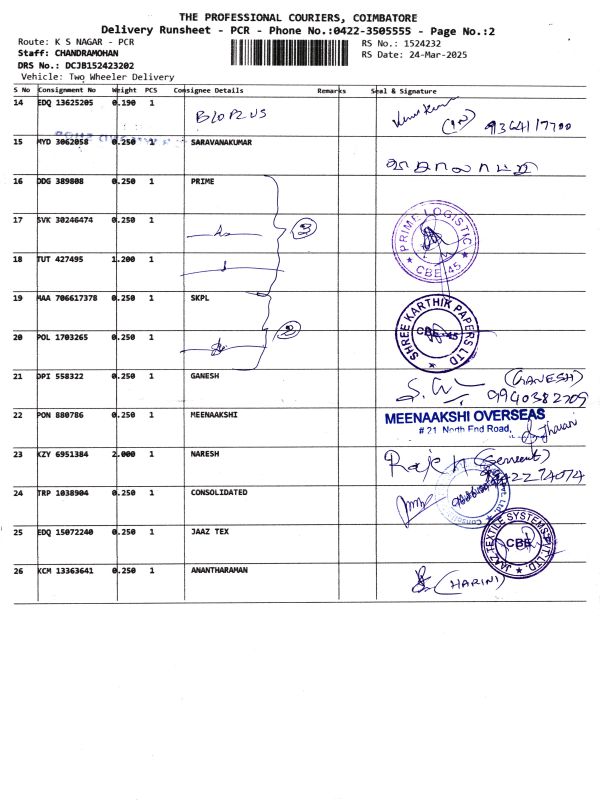 THE PROFESSIONAL COURIERS, COIMBATORE
Delivery Runsheet - PCR - Phone No.:0422-3505555 - Page No.:2
Route: K S NAGAR - PCR
RS No.: 1524232
Staff: CHANDRAMOHAN
RS Date: 24-Mar-2025
DRS No.: DCJB152423202
Vehicle: Two Wheeler Delivery
S No Consignment No Weight PCS Consignee Details Remarks Seal & Signature
14 EDQ 13625205 0.190 1 BLOPLUS
15 MYD 3062058 0.250 1 SARAVANAKUMAR
16 DDG 389808 0.250 1 PRIME
17 SVK 30246474 0.250 1 3
PRIME LOGISTIC CBE 45
18 TUT 427495 1.200 1
19 MAA 706617378 0.250 1 SKPL
20 POL 1703265 0.250 1 2
SHREE KARTHIK PAPERS LTD CBE 45
21 DPI 558322 0.250 1 GANESH (GANESH)
9940382709
22 PON 880786 0.250 1 MEENAAKSHI MEENAAKSHI OVERSEAS
# 21, North End Road,
23 KZY 6951384 2.000 1 NARESH
24 TRP 1038904 0.250 1 CONSOLIDATED
25 EDQ 15072240 0.250 1 JAAZ TEX JAAZ TEXTILE SYSTEMS PVT LTD. CBE
26 KCM 13363641 0.250 1 ANANTHARAMAN (HARINI)